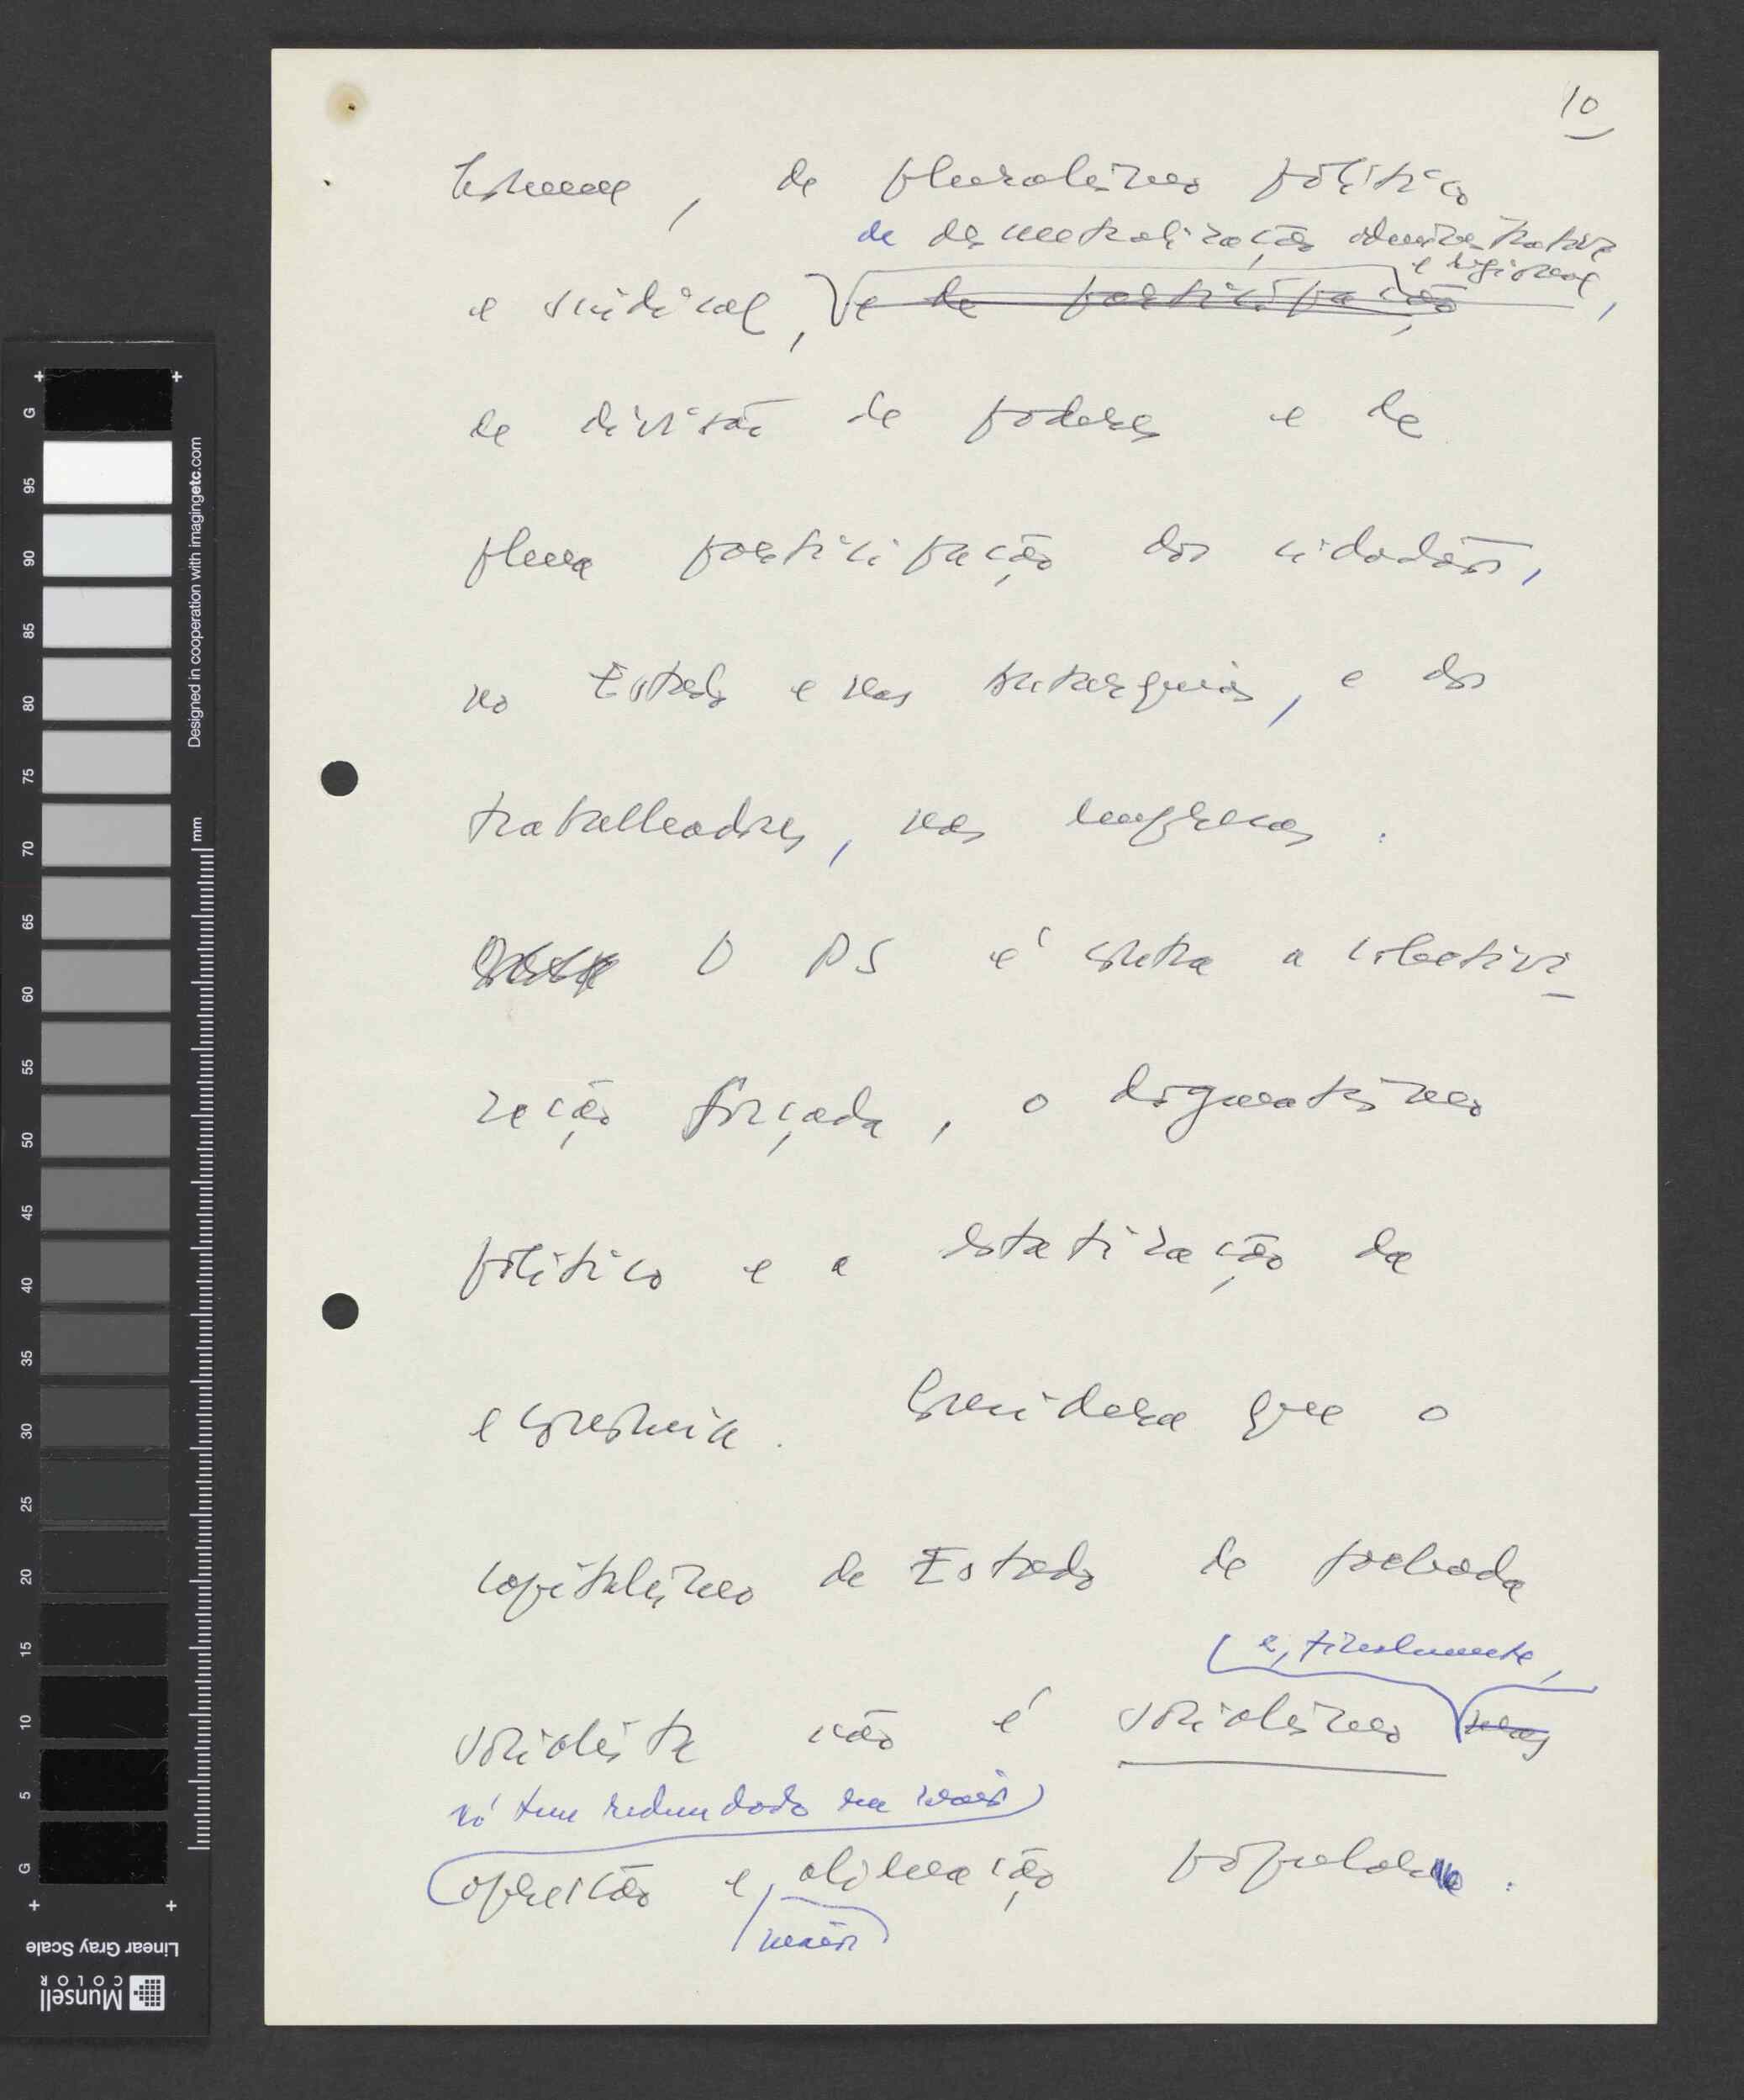 10
, de pluralismo político
de descentralização administrativa
e regional,
e sindical, e de participação
de divisão de poderes e de
plena participação dos cidadãos,
no Estado e nas autarquias, e dos
trabalhadores, nas empresas.
O PS é contra a colectivi
zação forçada, o dogmatismo
político e a estatização da
economia. Considera que o
capitalismo de Estado de fachada
(e, finalmente,
socialista não é socialismo mas
só tem redundado em mais
opressão e alienação popular.
maior
G
95
90
85
80
75
70
65
60
55
50
45
40
35
30
25
20
15
10
5
G
Designed in cooperation with imagingetc.com
mm
Linear Gray Scale
Munsell
COLOR